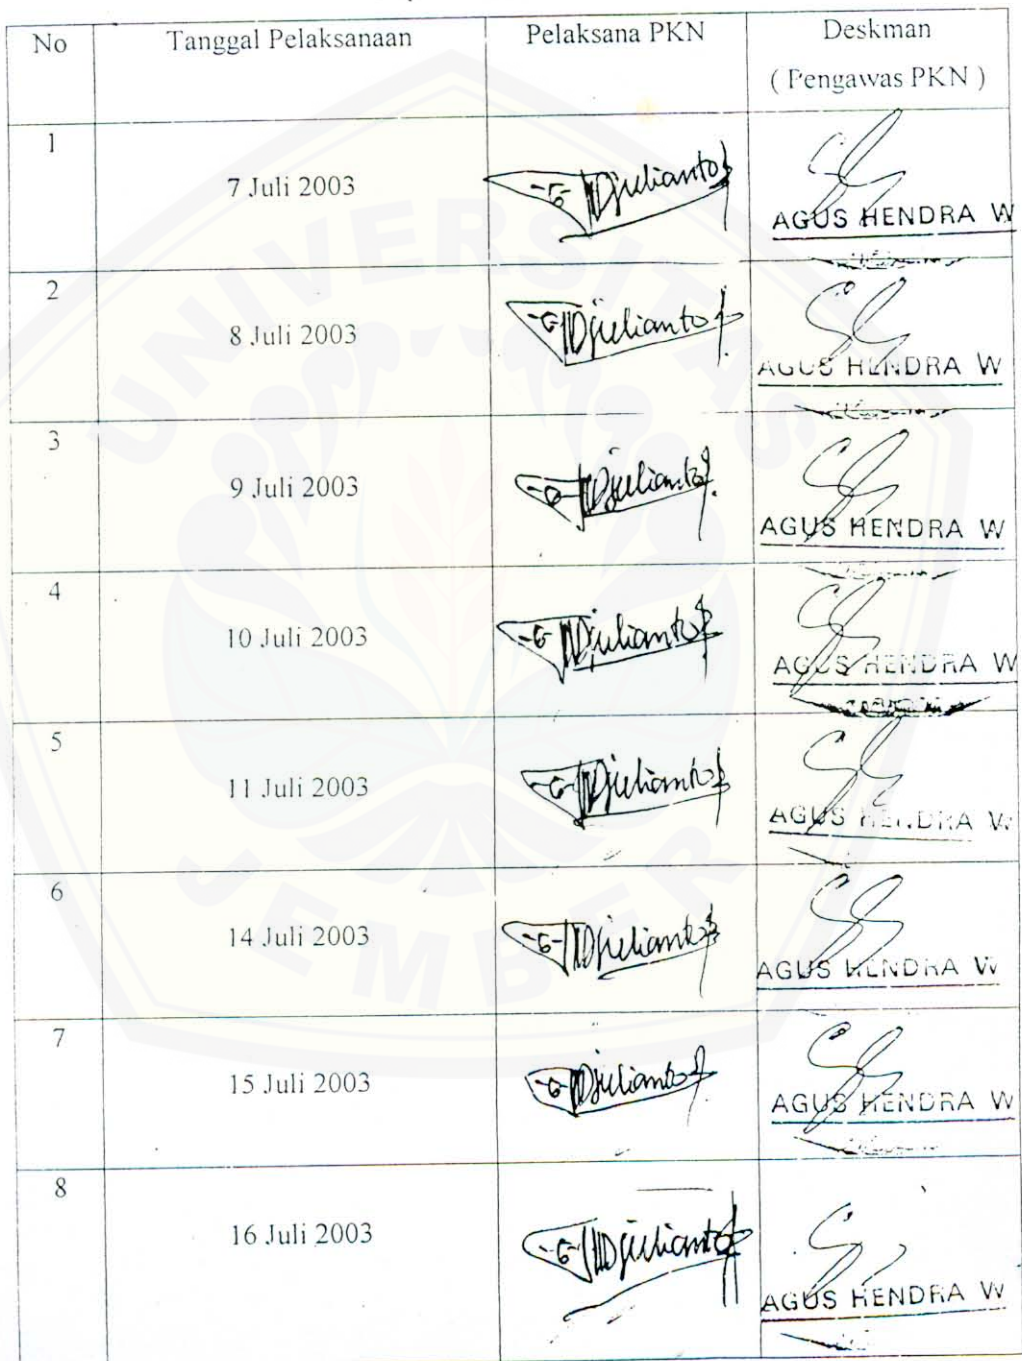 No Tanggal Pelaksanaan Pelaksana PKN Deskman
( Pengawas PKN )
1
7 Juli 2003 Djulianto
AGUS HENDRA W
2
8 Juli 2003 Djulianto
AGUS HENDRA W
3
9 Juli 2003 Djulianto
AGUS HENDRA W
4
10 Juli 2003 Djulianto
AGUS HENDRA W
5
11 Juli 2003 Djulianto
AGUS HENDRA W
6
14 Juli 2003 Djulianto
AGUS HENDRA W
7
15 Juli 2003 Djulianto
AGUS HENDRA W
8
16 Juli 2003 Djulianto
AGUS HENDRA W
UNIVERSITAS
JEMBER